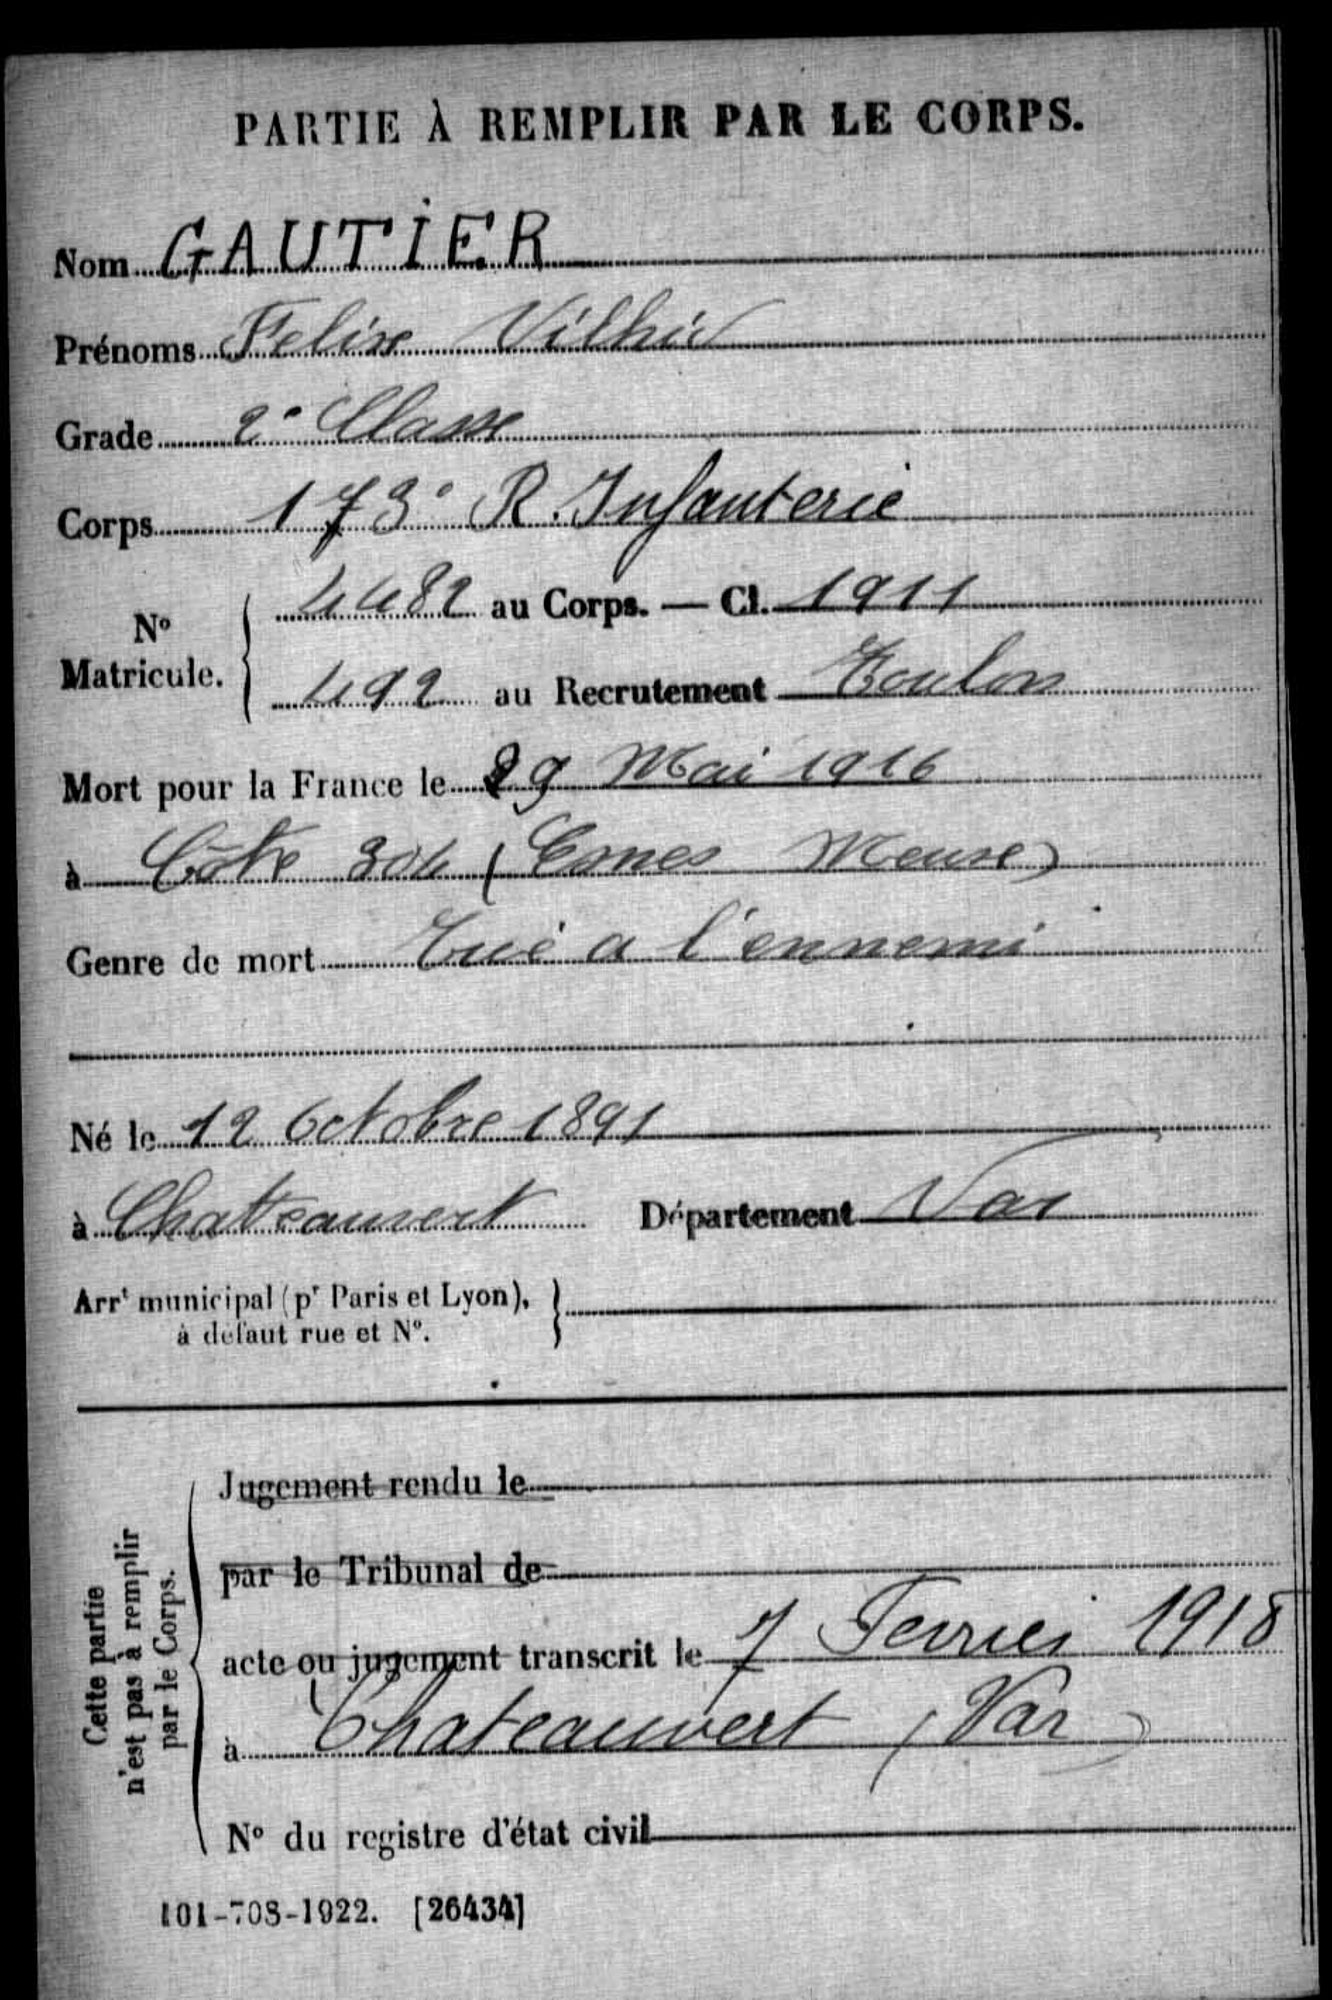 PARTIE À REMPLIR PAR LE CORPS.
Nom GAUTIER
Prénoms Felix
Grade 2e Classe
Corps 173e R. Infanterie
No Matricule. 4482 au Corps. — Cl. 1911
492 au Recrutement Toulon
Mort pour la France le 29 Mai 1916
à Côte 304 (Esnes Meuse)
Genre de mort Tué a l'ennemi
Né le 12 Octobre 1891
à Chateauvert Département Var
Arrt municipal (pr Paris et Lyon),
à défaut rue et No.
Cette partie
n'est pas à remplir
par le Corps.
Jugement rendu le
par le Tribunal de
acte ou jugement transcrit le 7 Fevrier 1918
à Chateauvert (Var)
No du registre d'état civil
101-708-1922. [26434]